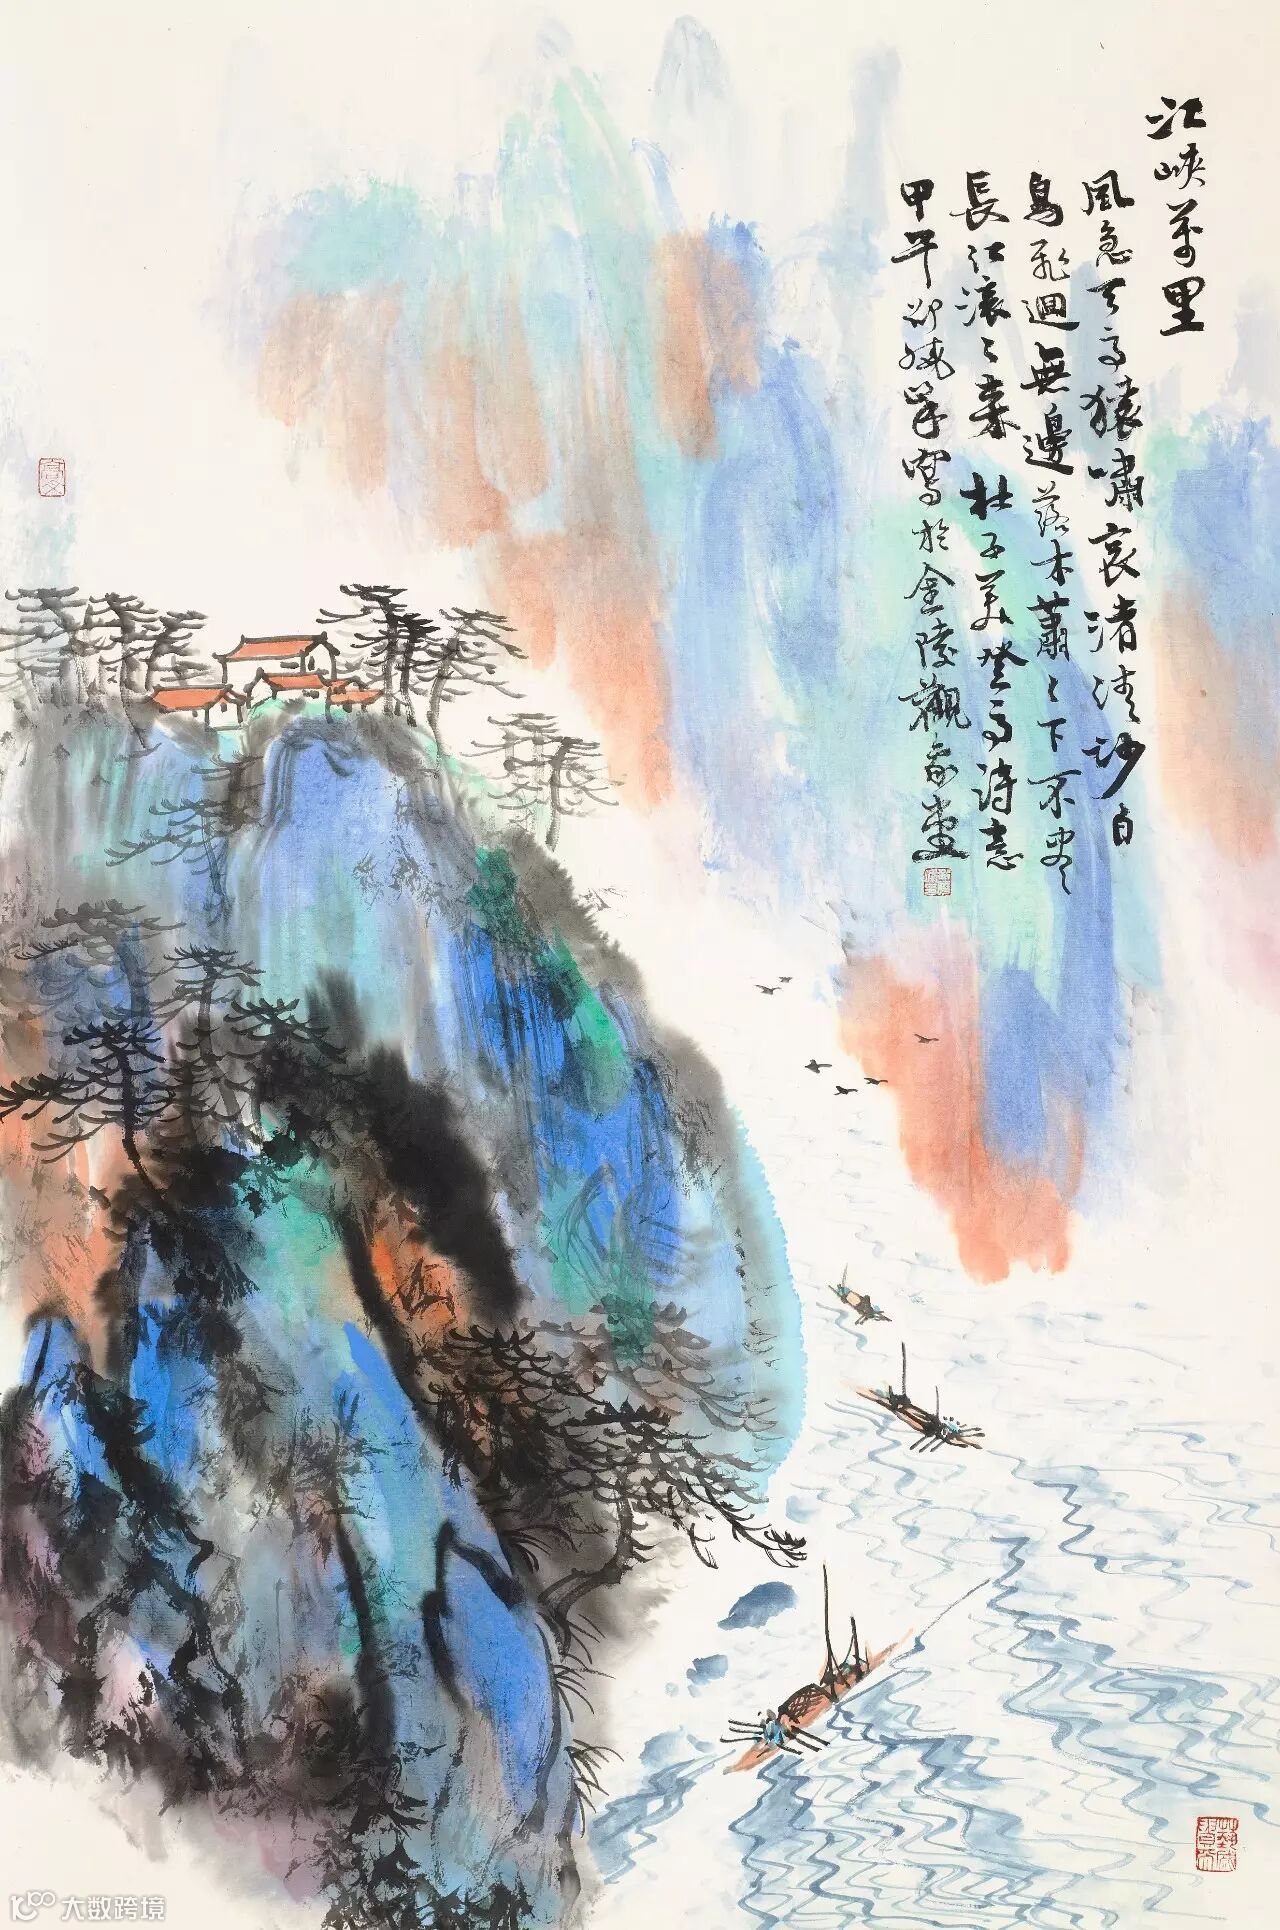 江峽萬里
風急天高猿嘯哀渚清沙白
鳥飛迴無邊落木蕭々下不盡
長江滾々來 杜子美登高詩意
甲午邵曉峯寫於金陵觀堂
大数跨境